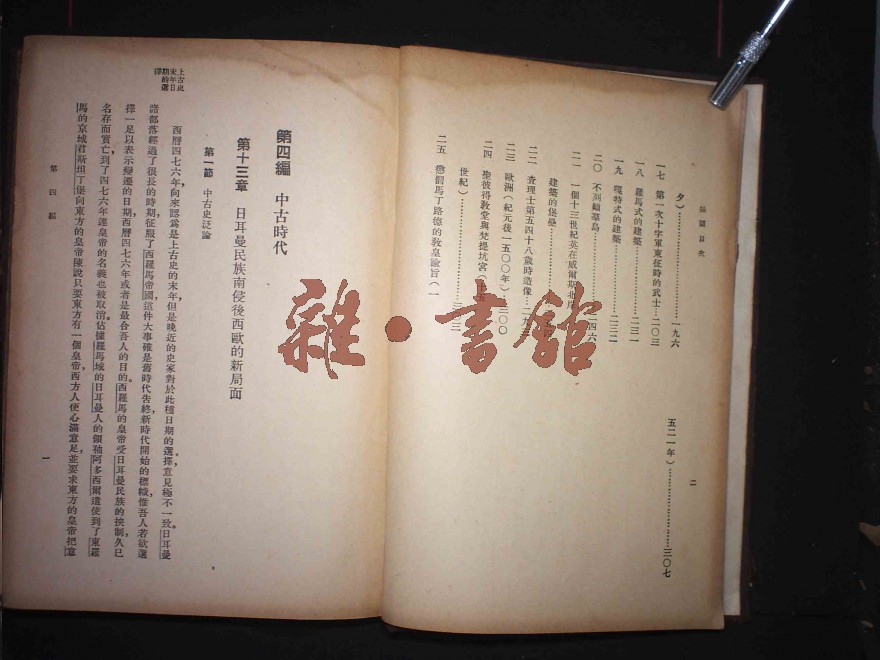 插圖目次
夕)……………………一九六
一七 第一次十字軍東征時的武士…二〇三
一八 羅馬式的建築………二三一
一九 嘎特式的建築………二三二
二〇 不列顛羣島………二四六
二一 一個十三世紀英在威爾斯北岸
建築的堡壘
二二 查理士第五四十八歲時造像…二九三
二三 歐洲(紀元後一五〇〇年)…三〇〇
二四 聖彼得教堂與梵提坑宮(十五
世紀)……………三〇三
二五 懲罰馬丁路德的教皇諭旨(一
五二一年)……………………三〇七
二
第四編 中古時代
第十三章 日耳曼民族南侵後西歐的新局面
第一節 中古史泛論
上古史
末年日
期的選
擇
西曆四七六年向來認爲是上古史的末年但是晚近的史家對於此種日期的選擇意見極不一致。日耳曼
諸部落經過了很長的時期,征服了西羅馬帝國,這件大事確是舊時代告終,新時代開始的標幟,惟吾人若欲選
擇一足以表示變遷的日期,西曆四七六年或者是最合吾人的目的。西羅馬的皇帝受日耳曼民族的挾制久已
名存而實亡,到了四七六年連皇帝的名義也被取消,佔據羅馬城的日耳曼人的領袖阿多西爾遣使到了東羅
馬的京城君斯坦丁堡向東方的皇帝陳說只要東方有一個皇帝,西方人便心滿意足,並要求東方的皇帝把意
第四編
一
雜·書館